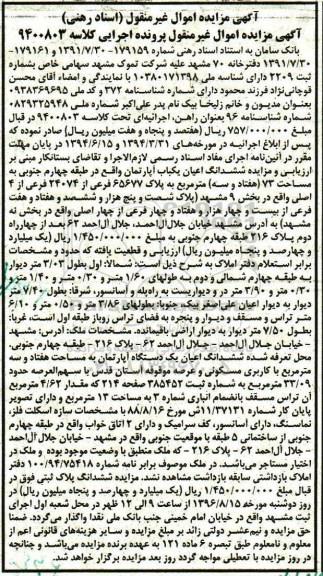 آگهی مزایده اموال غیرمنقول (اسناد رهنی)
آگهی مزایده اموال غیرمنقول پرونده اجرایی کلاسه ۹۴۰۰۸۰۳
بانک سامان به استناد اسناد رهنی شماره ۱۷۹۱۵۹-۱۳۹۱/۷/۳۰ و ۱۷۹۱۶۱-
۱۳۹۱/۷/۳۰ دفترخانه ۷۰ مشهد علیه شرکت تموک مشهد سهامی خاص بشماره
ثبت ۲۲۰۹ دارای شناسه ملی ۱۰۳۸۰۱۷۱۳۹۸ با نمایندگی و امضاء آقای محسن
قوچانی‌نژاد فرزند محمود دارای شماره‌شناسنامه ۳۷۲ و کد ملی ۰۹۳۸۳۶۹۶۹۵
بعنوان مدیون و خانم زلیخا بیک نام پدر علی‌اکبر شماره ملی ۰۸۲۹۳۲۵۹۴۸
شماره شناسنامه ۹۶ بعنوان راهن، اجرائیه‌ای تحت کلاسه ۹۴۰۰۸۰۳ در قبال
مبلغ ۷۵۷/۰۰۰/۰۰۰ ریال (هفتصد و پنجاه و هفت میلیون ریال) صادر نموده که
پس از ابلاغ اجرائیه در مورخه‌های ۱۳۹۴/۳/۳۱ و ۱۳۹۴/۶/۱۵ در پایان مهلت
مقرر در آئین‌نامه اجرای مفاد اسناد رسمی لازم‌الاجرا و تقاضای بستانکار مبنی بر
ارزیابی و مزایده ششدانگ اعیان یکباب آپارتمان واقع در طبقه چهارم جنوبی به
مساحت ۷۳ (هفتاد و سه) مترمربع به پلاک ۶۵۶۷۷ فرعی از ۲۴۰۷۴ فرعی از ۴
اصلی واقع در بخش ۹ مشهد (پلاک شصت و پنج هزار و ششصد و هفتاد و هفت
فرعی از بیست و چهار هزار و هفتاد و چهار فرعی از چهار اصلی واقع در بخش نه
مشهد) به آدرس مشهد خیابان جلال‌آل‌احمد، جلال آل‌احمد ۶۲ بعد از چهارراه
دوم پلاک ۲۱۶ طبقه چهارم جنوبی به مبلغ ۱/۴۵۰/۰۰۰/۰۰۰ ریال (یک میلیارد
و چهارصد و پنجاه میلیون ریال) ارزیابی و قطعیت یافته که حدود و مشخصات
برابر استعلام دفتر املاک به شرح ذیل است: شمالا: اول بطول ۲/۰۳ متر دیوار
به طبقه چهارم شمالی و دوم به طولهای ۱/۶۰ متر و ۰/۳۰ متر و ۱/۴۰ متر و
۰/۳۰ متر و ۳/۹۰ متر در و دیواریست به راه‌پله و آسانسور، شرقا: بطول ۷/۴۰ متر
دیوار به دیوار اعیان علی‌صفر نیک، جنوبا: بطولهای ۳/۸۲ متر و ۰/۵۰ متر و ۶/۱۰
متر تراس و مسقف و دیوار و پنجره به فضای تراس روباز طبقه اول است، غربا:
بطول ۷/۵۰ متر دیوار به دیوار اراضی باقیمانده. مشخصات ملک: آدرس: مشهد
- خیابان جلال آل‌احمد - جلال آل‌احمد ۶۲ - پلاک ۲۱۶ - طبقه چهارم جنوبی
محل تعرفه شده ششدانگ اعیان یک دستگاه آپارتمان به مساحت هفتاد و سه
مترمربع با کاربری مسکونی و عرصه موقوفه آستان قدس با سهم‌العرصه حدود
۳۳/۰۹ مترمربع به شماره ثبت ۳۸۵۴۵۲ صفحه ۲۱۴ که مقدار ۴/۶۲ مترمربع
آن تراس مسقف بانضمام انباری شماره ۳ به مساحت ۱۳ مترمربع و دارای تصویر
پایان کار شماره ۱۱/۳۷۱۳۱ش مورخ ۸۸/۸/۱۶ با مشخصات سازه اسکلت فلز،
نماسنگ، دارای آسانسور، کف سرامیک و دارای ۲ اتاق خواب واقع در طبقه چهارم
جنوبی از ساختمانی ۵ طبقه با موقعیت جنوبی واقع در مشهد - خیابان جلال آل‌احمد
- جلال آل‌احمد ۶۲ - پلاک ۲۱۶ - که ملک منطبق با وضعیت موجود بوده و ملک در
اختیار مستاجر می‌باشد. در ملک موصوف برابر نامه شماره ۱۰۰/۹۴/۷۵۴۱۸ دفتر
املاک بازداشتی سابقه بازداشت مشاهده نشد. مزایده ششدانگ پلاک ثبتی فوق در
قبال مبلغ ۱/۴۵۰/۰۰۰/۰۰۰ ریال (یک میلیارد و چهارصد و پنجاه میلیون ریال) در
روز دوشنبه مورخه ۱۳۹۶/۸/۱۵ از ساعت ۹ الی ۱۲ ظهر در محل شعبه اول اجرای
ثبت مشهد واقع در خیابان امام خمینی جنب بانک ملی نقدا واگذار می‌گردد. ضمنا
حق مزایده و نیم‌عشر دولتی زائد بر مبلغ مزایده و سایر هزینه‌های قانونی اعم از
معلوم و نامعلوم طبق تبصره ۶ ماده ۱۲۱ به عهده برنده مزایده می‌باشد و چنانچه
در روز مزایده با تعطیلی مواجه گردد روز بعد مزایده برگزار خواهد شد.